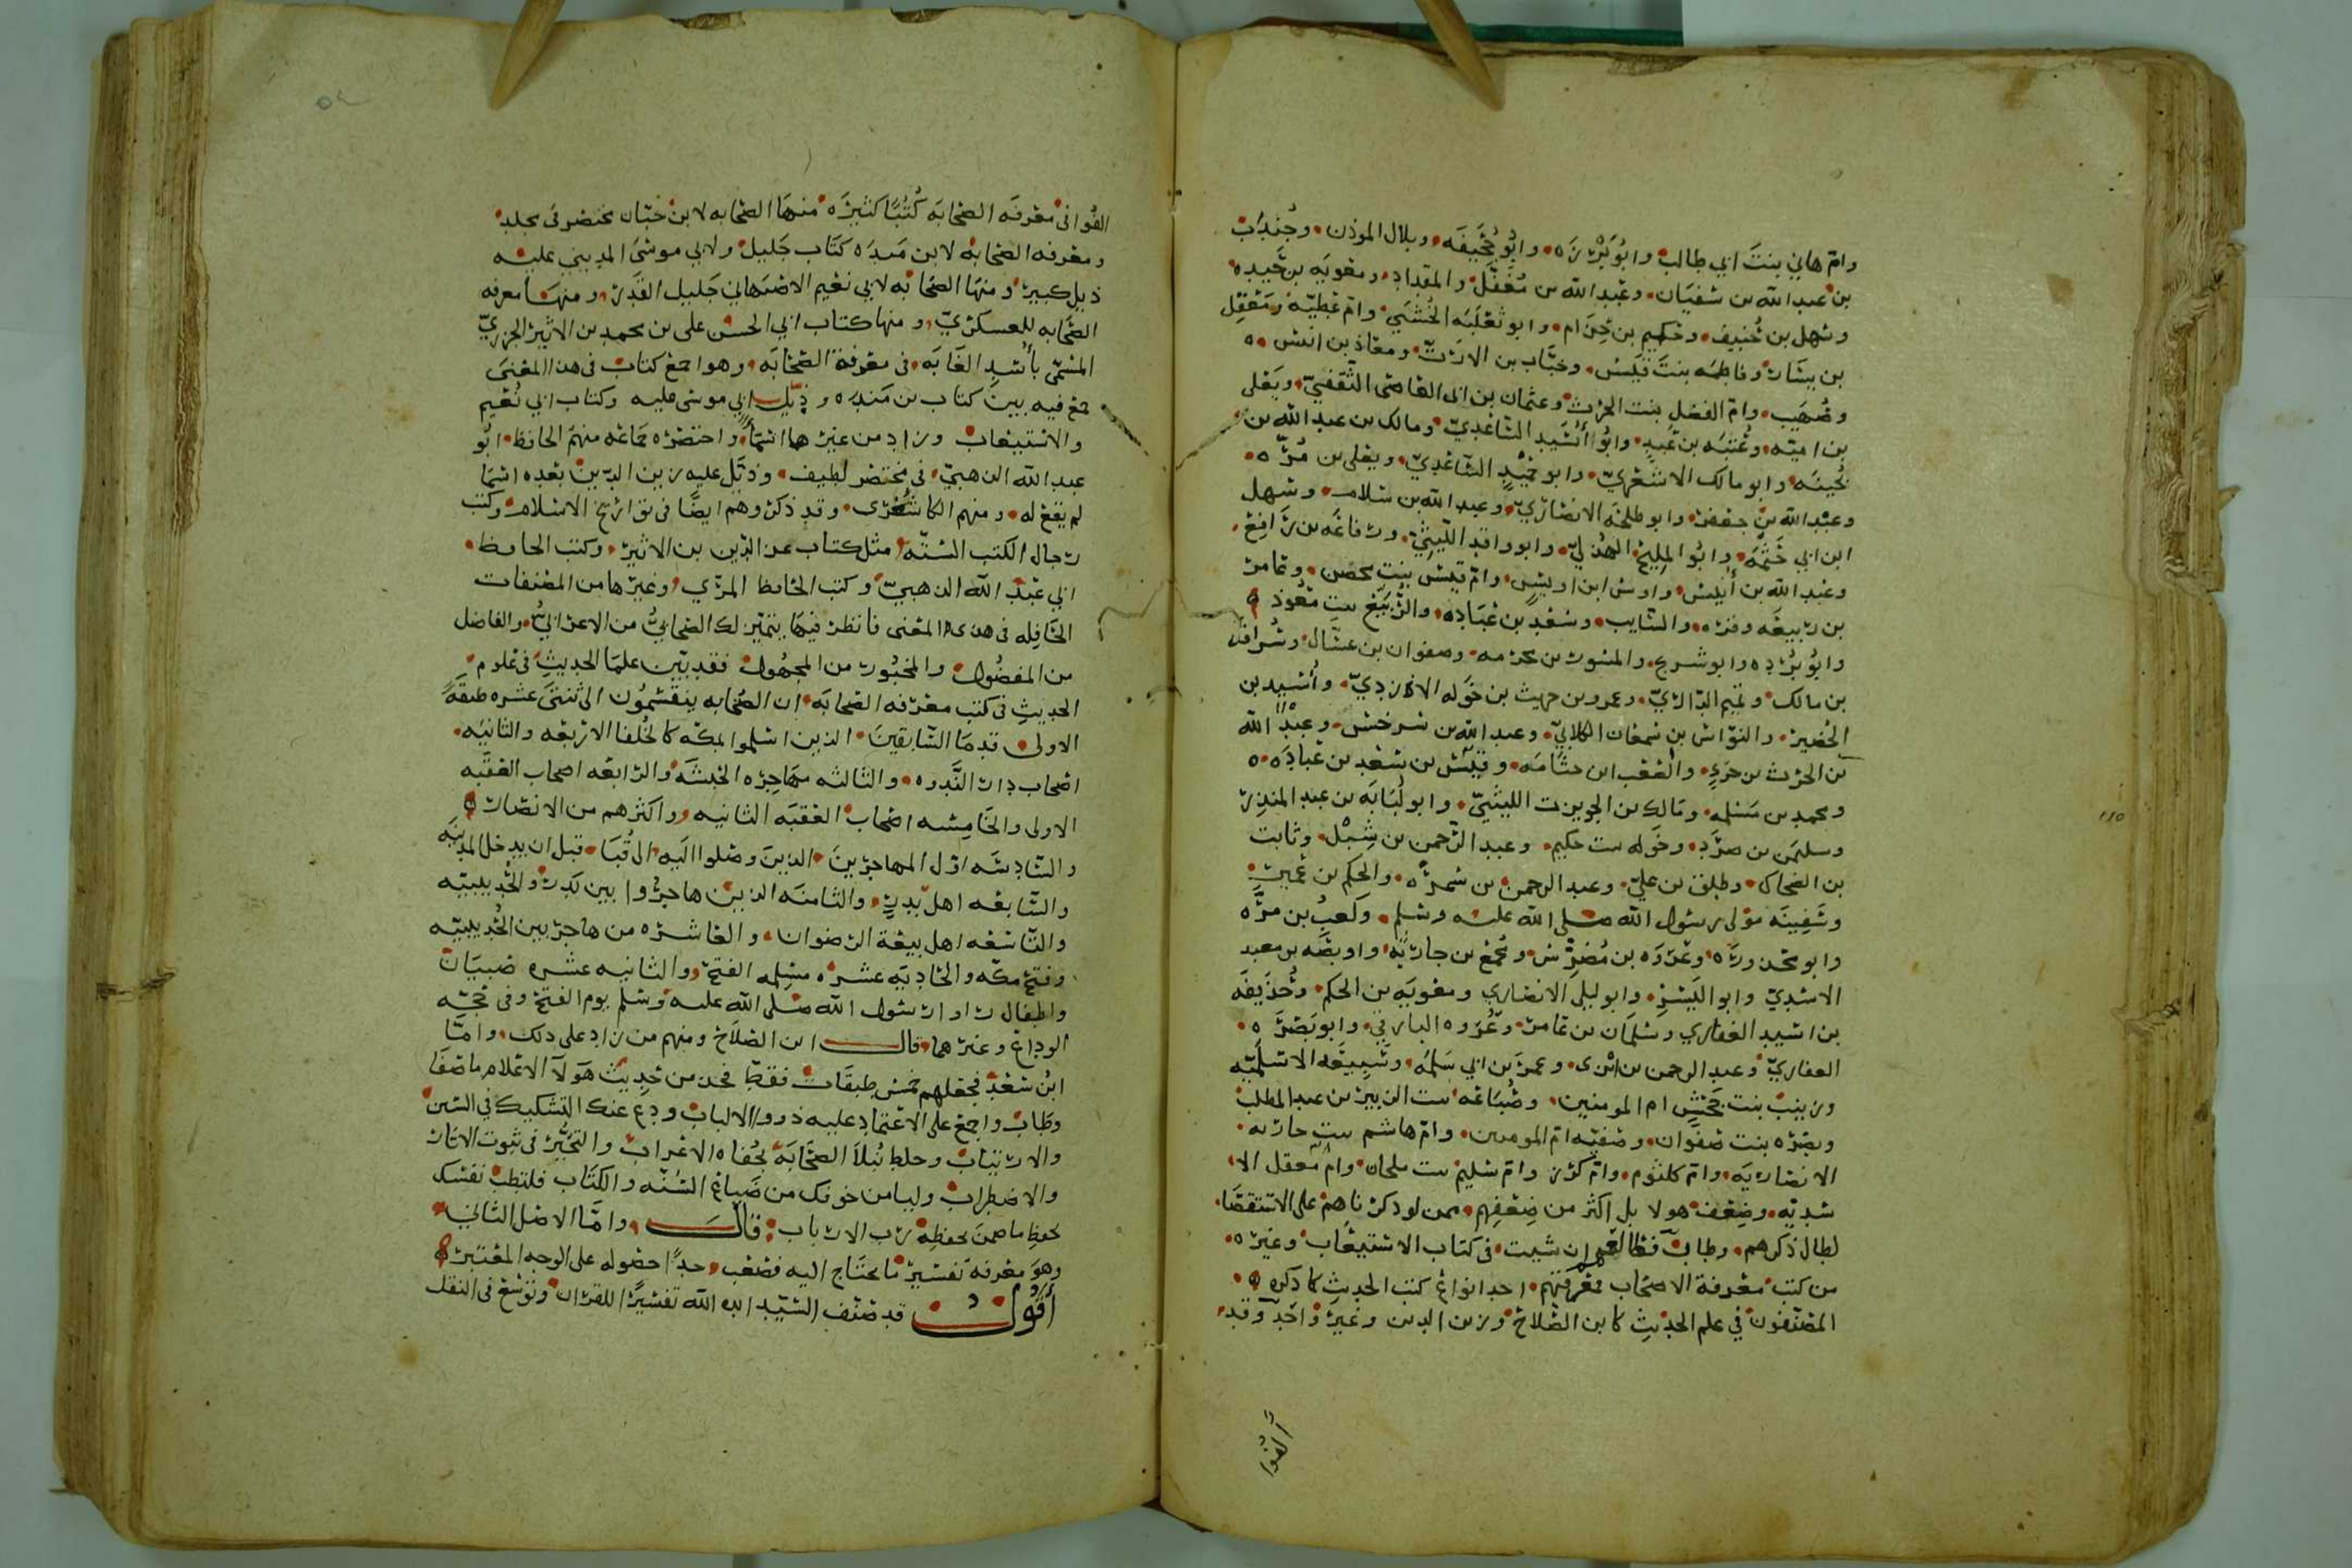 وام هاني بنت ابي طالب وابو برزه وابو جحيفه وبلال الموذن وجندب
بن عبد الله بن سفيان وعبد الله بن مغفل والمقداد ومعويه بن حيده
وسهل بن حنيف وحكيم بن حزام وابو ثعلبه الخشني وام عطيه ومعقل
بن يسار وفاطمه بنت قيس وخباب بن الارت ومعاذ بن انس
وصهيب وام الفضل بنت الحرث وعثمان بن ابى العاصى الثقفي ويعلى
بن اميه وعتبه بن عبد وابو أسيد الساعدي ومالك بن عبد الله بن
بحينه وابو مالك الاشعري وابو حميد الساعدي ويعلى بن مره
وعبد الله بن جعفر وابو طلحه الانصاري وعبد الله بن سلام وسهل
ابن ابي حثمه وابو المليح الهذلي وابو واقد الليثي ورفاعه بن رافع
وعبد الله بن أنيس واوس ابن اويس وام قيس بنت محصن وعامر
بن ربيعه وقره والسايب وسعد بن عباده والربيع بنت معوذ
وابو برده وابو شريح والمسور بن مخرمه وصفوان بن عسال وسراقه
بن مالك وتميم الداري وعمرو بن حريث بن خوله الازدي وأسيد بن
الحضير والنواس بن سمعان الكلابي وعبد الله بن سرخس وعبد الله
بن الحرث بن جزي والصعب ابن جثامه وقيس بن سعد بن عباده
ومحمد بن مسلمه ومالك بن الحويرث الليثي وابو لبابه بن عبد المنذر
وسليمن بن صرد وخوله بنت حكيم وعبد الرحمن بن شبل وثابت
بن الضحاك وطلق بن علي وعبد الرحمن بن سمره والحكم بن عمير
وسفينه مولى رسول الله صلى الله عليه وسلم وكعب بن مره
وابو محذوره وعروه بن مضرس ومجمع بن جاريه ووابصه بن معبد
الاسدي وابو اليسر وابو ليلى الانصاري ومعويه بن الحكم وحذيفه
بن اسيد الغفاري وسلمان بن عامر وعروه البارقي وابو بصره
الغفاري وعبد الرحمن بن ابزى وعمر بن ابي سلمه وسبيعه الاسلميه
وزينب بنت جحش ام المومنين وضباعه بنت الزبير بن عبد المطلب
وبسره بنت صفوان وصفيه ام المومنين وام هاشم بنت حارثه
الانصاريه وام كلثوم وام كرز وام سليم بنت ملحان وام معقل الا
سديه وضعف هولا بل اكثر من ضعفهم ممن لو ذكرناهم على الاستقصا
لطال ذكرهم وطالب ان شيت في كتاب الاستيعاب وغيره
من كتب معرفة الاصحاب فمعرفتهم احد انواع كتب الحديث كما ذكره
المصنفون في علم الحديث كابن الصلاح وزين الدين وغير واحد وقد
ألفوا
الفوا في معرفه الصحابه كتبا كثيره منها الصحابه لابن حبان مختصر في مجلد
ومعرفه الصحابه لابن منده كتاب جليل ولابي موسى المديني عليه
ذيل كبير ومنها الصحابه لابي نعيم الاصبهاني جليل القدر ومنها معرفه
الصحابه للعسكري ومنها كتاب ابي الحسن على بن محمد بن الاثير الجزري
المسمى بأسد الغابه في معرفة الصحابه وهو اجمع كتاب في هذا المعنى
جمع فيه بين كتاب بن منده وذيل ابي موسى عليه وكتاب ابي نعيم
والاستيعاب وزاد من غيرها اسمأ واختصره جماعه منهم الحافظ ابو
عبد الله الذهبي في مختصر لطيف وذيل عليه زين الدين بعده اسما
لم يقع له ومنهم الكاشغرى وقد ذكروهم ايضا في تواريخ الاسلام وكتب
رجال الكتب السته مثل كتاب عز الدين بن الاثير وكتب الحافظ
ابي عبد الله الذهبي وكتب الحافظ المزي وغيرها من المصنفات
الحافله في هذا المعنى فانظر فيها يتميز لك الصحابي من الاعرابي والفاضل
من المفضول والمخبور من المجهول فقد بين علما الحديث في علوم
الحديث في كتب معرفه الصحابه ان الصحابه ينقسمون الى ثنتى عشره طبقه
الاولى قدما السابقين الذين اسلموا بمكه كالخلفا الاربعه والثانيه
اصحاب دار الندوه والثالثه مهاجره الحبشه والرابعه اصحاب العقبه
الاولى والخامسه اصحاب العقبه الثانيه واكثرهم من الانصار
والسادسه اول المهاجرين الذين وصلوا اليه الى قبا قبل ان يدخل المدينه
والسابعه اهل بدر والثامنه الذين هاجروا بين بدر والحديبيه
والتاسعه اهل بيعة الرضوان والعاشره من هاجر بين الحديبيه
وفتح مكه والحاديه عشره مسلمه الفتح والثانيه عشره صبيان
واطفال راوا رسول الله صلى الله عليه وسلم يوم الفتح وفى حجه
الوداع وغيرهما قال ابن الصلاح ومنهم من زاد على ذلك واما
ابن سعد فجعلهم خمس طبقات فقط فخذ من حديث هولا الاعلام ما صفا
وطاب واجمع على الاعتماد عليه ذوو الالباب ودع عنك التشكيك في السنن
والارتياب وخلط نبلا الصحابه بجفاه الاعراب والتحير في ثبوت الاثار
والاضطراب وليامن خوفك من ضياع السنه والكتاب فلتطب نفسك
بحفظ ما ضمن بحفظه رب الارباب قال واما الاصل الثاني
وهو معرفه تفسير ما يحتاج اليه فصعب جدا حصوله على الوجه المعتبر
أقول قد صنف السيد ايده الله تفسيرا للقران وتوسع في النقل